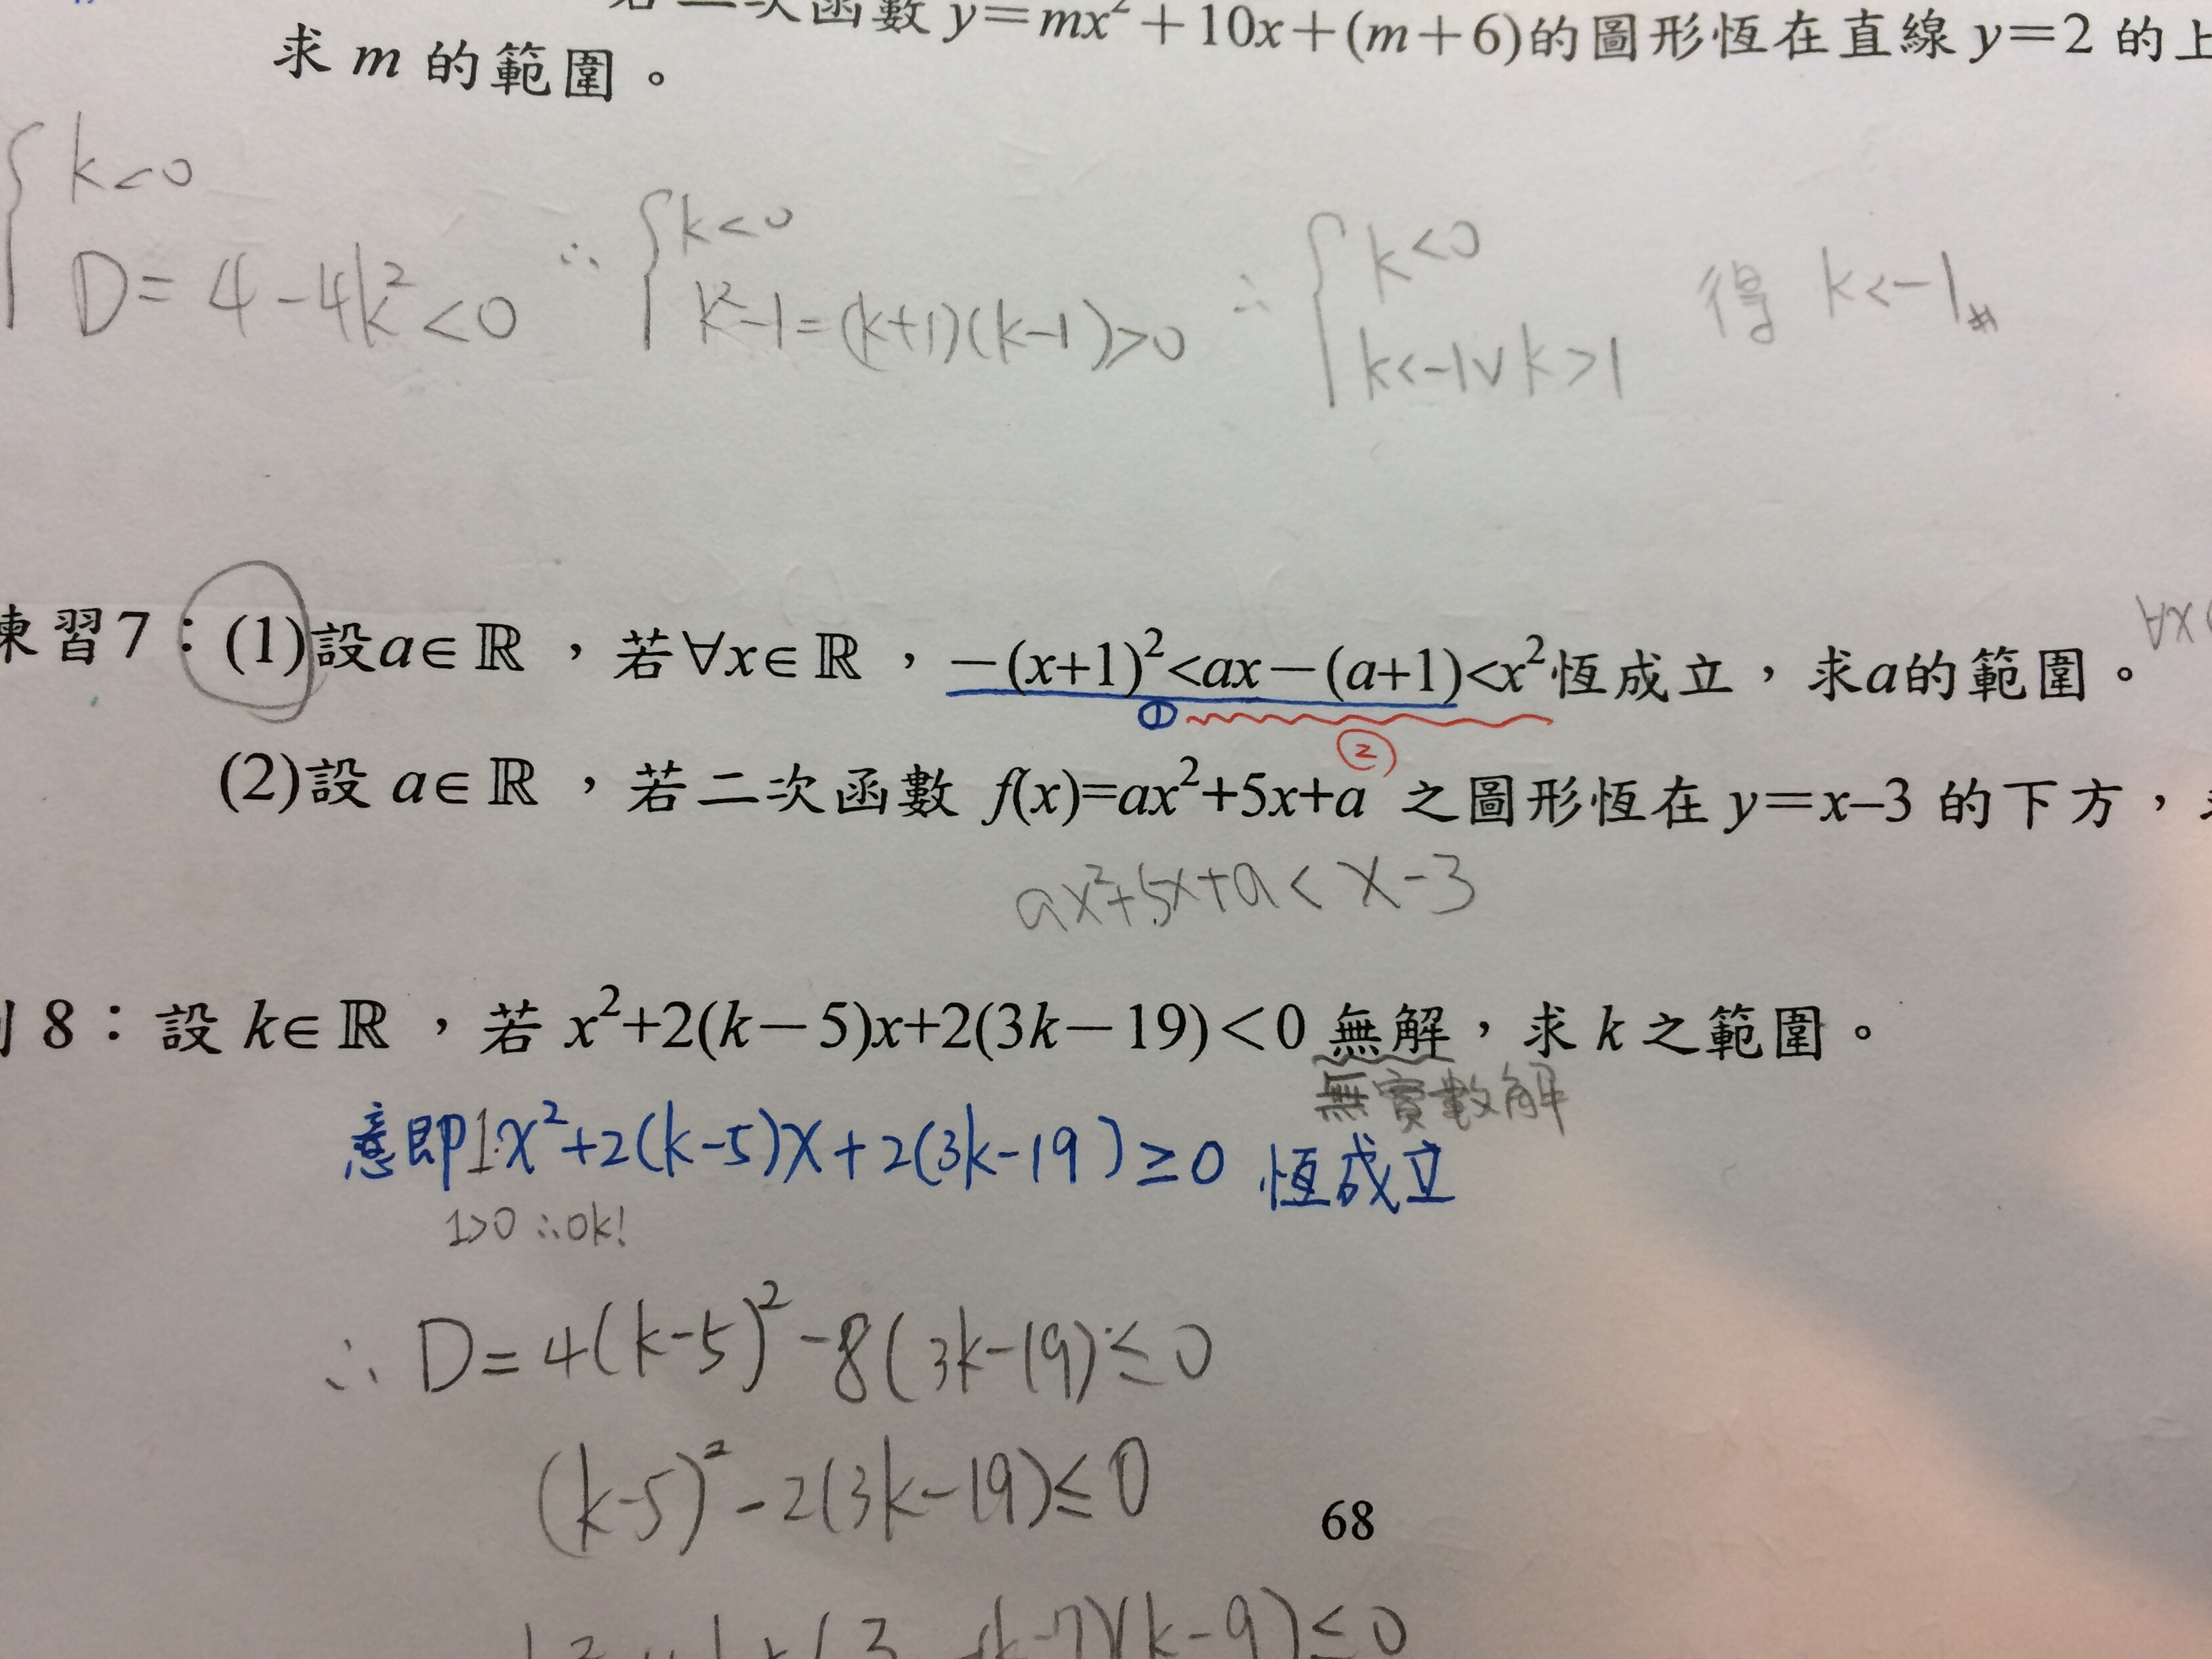 二次函數 y=mx²+10x+(m+6)的圖形恆在直線 y=2 的上
求 m 的範圍。
{ k<0
D=4-4k²<0
∴ { k<0
k²-1=(k+1)(k-1)>0
∴ { k<0
k<-1∨k>1
得 k<-1#
練習7：(1)設a∈ℝ，若∀x∈ℝ，-(x+1)²<ax-(a+1)<x²恆成立，求a的範圍。
∀x
① ②
(2)設 a∈ℝ，若二次函數 f(x)=ax²+5x+a 之圖形恆在 y=x-3 的下方，
ax²+5x+a<x-3
8：設 k∈ℝ，若 x²+2(k-5)x+2(3k-19)<0 無解，求 k 之範圍。
無實數解
意即1·x²+2(k-5)x+2(3k-19)≥0 恆成立
1>0 ∴ok!
∴ D=4(k-5)²-8(3k-19)≤0
(k-5)²-2(3k-19)≤0
68
(k-7)(k-9)≤0